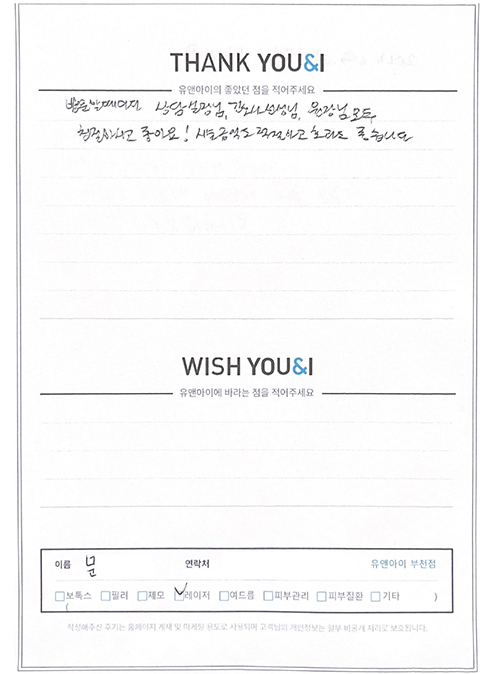 THANK YOU&I
유앤아이의 좋았던 점을 적어주세요
상담실장님, 간호사선생님, 원장님 모두
친절하시고 좋아요! 시술금액도 적절하고 효과도 좋습니다
WISH YOU&I
유앤아이에 바라는 점을 적어주세요
이름 문 연락처 유앤아이 부천점
보톡스 필러 제모 레이저 여드름 피부관리 피부질환 기타 ( )
작성해주신 후기는 홈페이지 게재 및 마케팅 용도로 사용되며 고객님의 개인정보는 일부 비공개 처리로 보호됩니다.